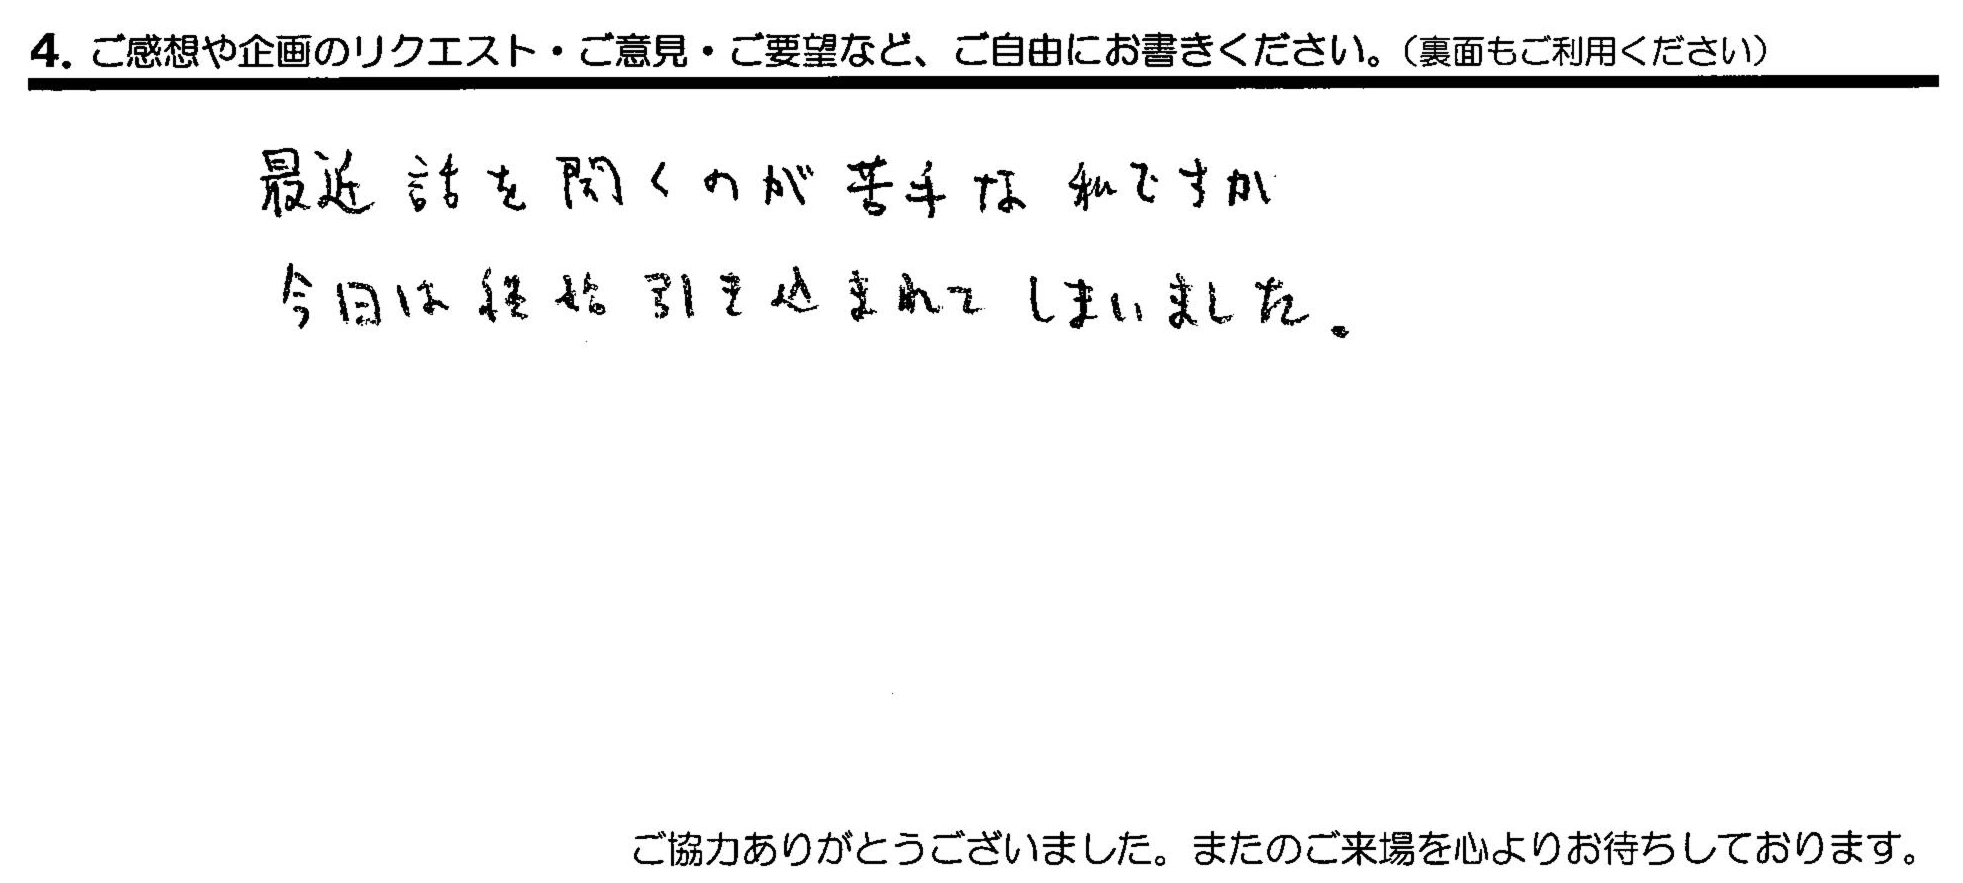 4. ご感想や企画のリクエスト・ご意見・ご要望など、ご自由にお書きください。（裏面もご利用ください）
最近 話を聞くのが苦手な私ですが
今日は終始引き込まれてしまいました。
ご協力ありがとうございました。またのご来場を心よりお待ちしております。